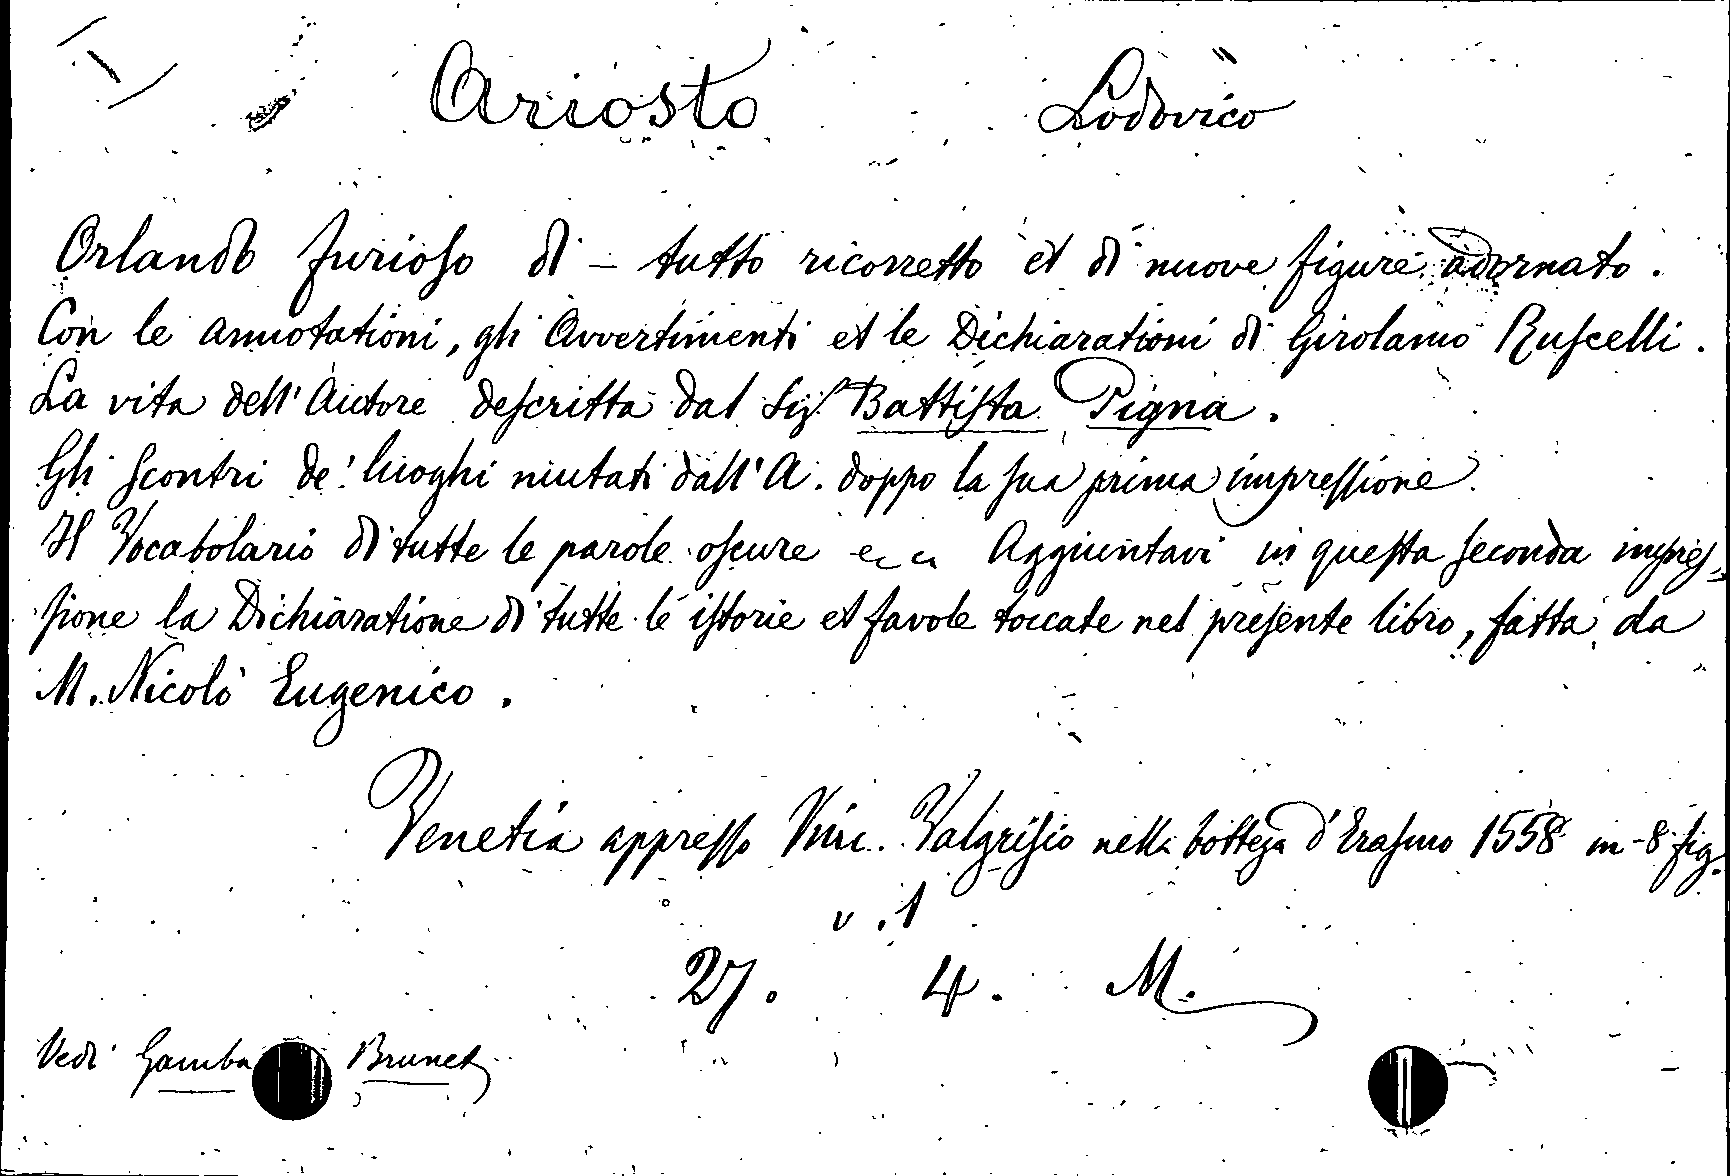 Ariosto Lodovico
Orlando furioso di - tutto ricorretto et di nuove figure adornato.
Con le annotationi, gli Avvertimenti et le Dichiarationi di Girolamo Ruscelli.
La vita dell'Autore descritta dal Sig.r Battista Pigna.
Gli scontri de' luoghi mutati dall'A. doppo la sua prima impressione.
Il Vocabolario di tutte le parole oscure Aggiuntavi in questa seconda impres=
sione la Dichiaratione di tutte le istorie et favole toccate nel presente libro, fatta da
M. Nicolò Eugenico.
Venetia appresso Vinc. Valgrisio nella bottega d'Erasmo 1558 in-8 fig.
v. 1
27. 4. M.
Vedi Gamba Brunet